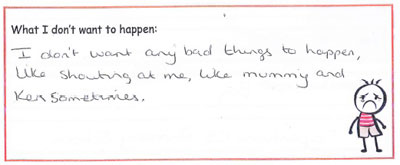 What I don't want to happen:
I don't want any bad things to happen,
like shouting at me, like mummy and
Ken sometimes.